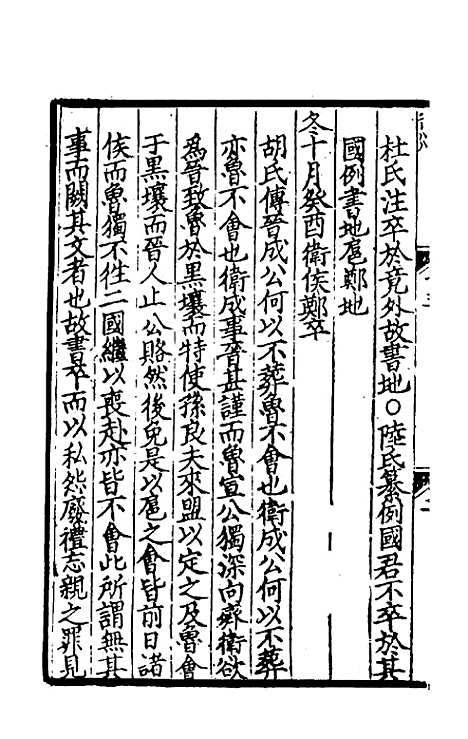 杜氏注卒於竟外故書地○陸氏纂例國君不卒於其
國例書地扈鄭地
冬十月癸酉衛侯鄭卒
胡氏傳晉成公何以不葬魯不會也衛成公何以不葬
亦魯不會也衛成事晉甚謹而魯宣公獨深向齊衛欲
為晉致魯於黑壤而特使孫良夫來盟以定之及魯會
于黑壤而晉人止公賂然後免是以扈之會皆前日諸
侯而魯獨不徃二國繼以喪赴亦皆不會此所謂無其
事而闕其文者也故書卒而以私怨廢禮忘親之罪見